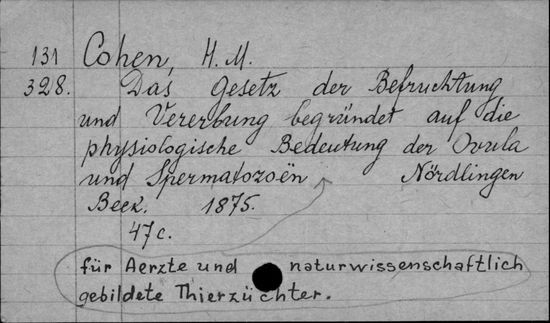 131 Cohen, H. M.
328. Das Gesetz der Befruchtung
und Vererbung begründet auf die
physiologische Bedeutung der Ovula
und Spermatozoën Nördlingen
Beck. 1875.
47c.
für Aerzte und naturwissenschaftlich
gebildete Thierzüchter.